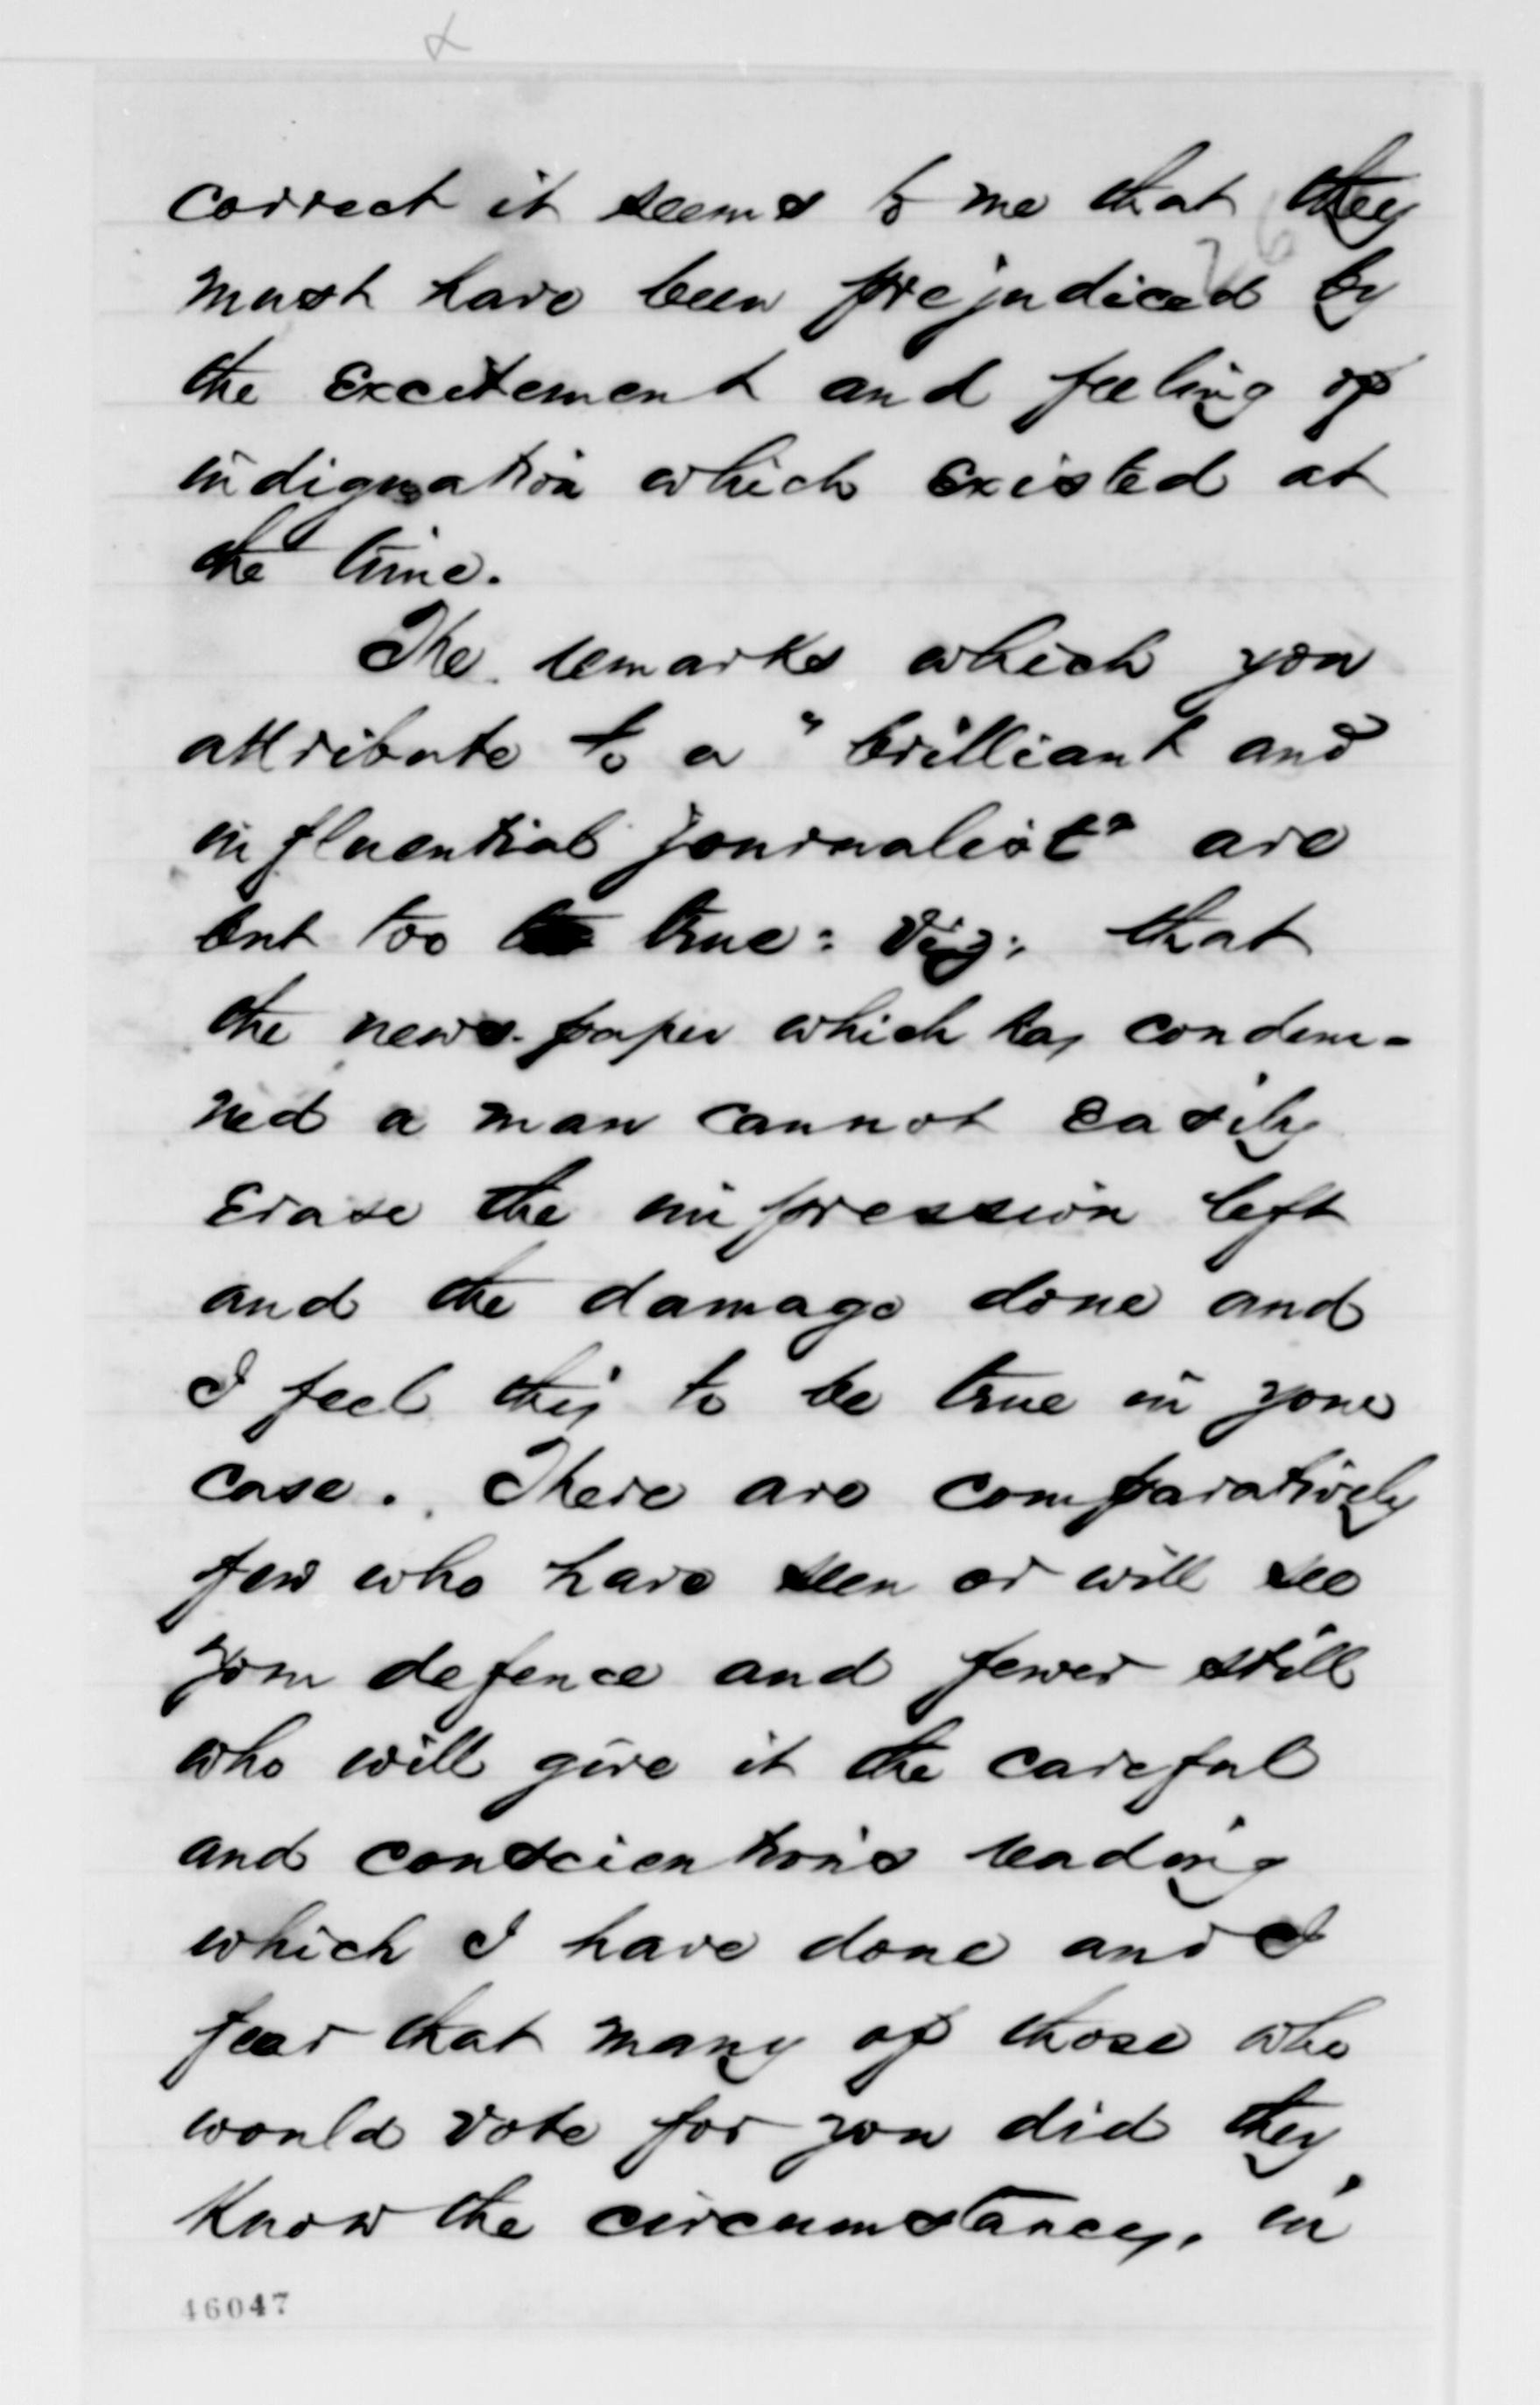 correct it seems to me that they
must have been prejudiced by
the excitement and feeling of
indignation which existed at
the time.
The remarks which you
attribute to a "brilliant and
influential journalist" are
but too true: viz: that
the news-paper which has condem-
ned a man cannot easily
erase the impression left
and the damage done and
I feel this to be true in your
case. There are comparatively
few who have seen or will see
your defence and fewer still
who will give it the careful
and conscientious reading
which I have done and I
fear that many of those who
would vote for you did they
know the circumstances, in
46047